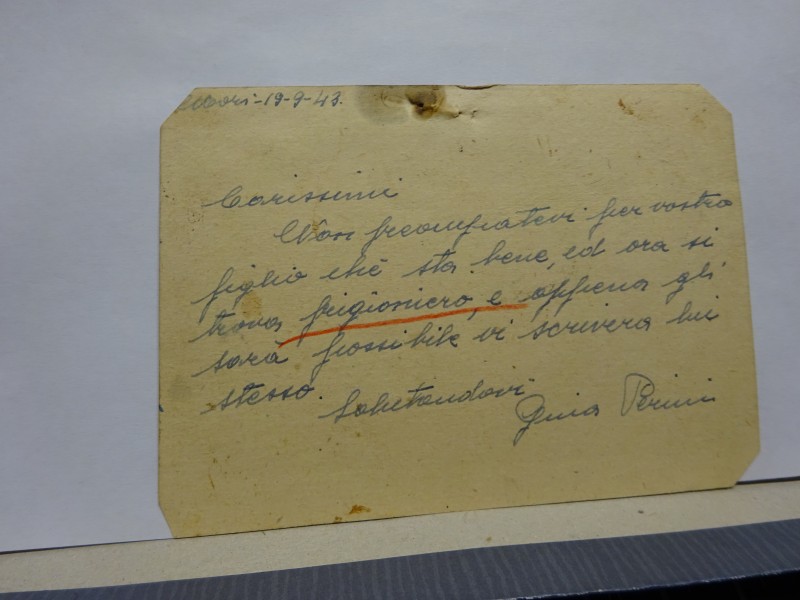 Mori-19-9-43.
Carissimi
Non preocupatevi per vostro
figlio che sta bene, ed ora si
trova prigioniero, e appena gli
sarà possibile vi scriverà lui
stesso.
Salutandovi
Perini